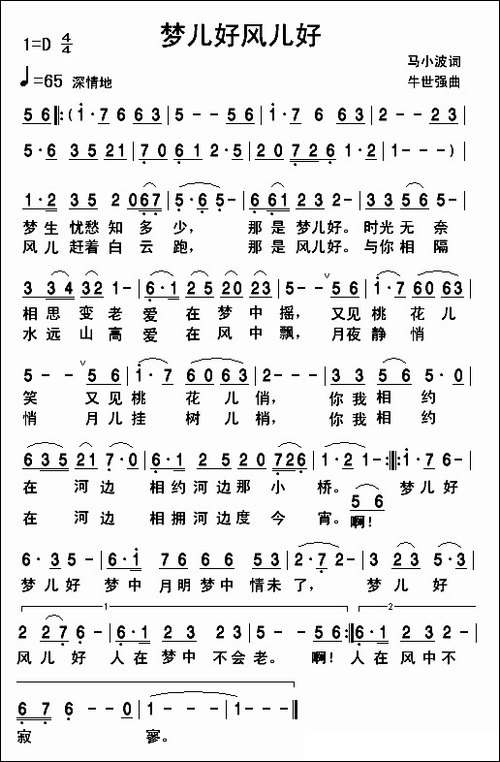 梦儿好风儿好
1=D 4/4
马小波词
♩=65 深情地
牛世强曲
5 6 ‖: ( i· 7 6 6 3 | 5 - - 5 6 | i· 7 6 0 6 3 | 2 - - 2 3 |
5· 6 3 5 2 1 | 7· 0 6 5 - | 2 0 7 2 6 | 1· 2 1 | 1 - - - ) |
1· 2 3 5 2 0 6 7 | 5· 6 5 - | 6 6 1 2 3 2 - | 3 3 5 2 - |
梦生忧愁知多少， 那是梦儿好。时光无奈
风儿赶着白云跑， 那是风儿好。与你相隔
3 3 4 3 2 1 - | 6· 1 2 5 2 0 2 3 | 5 - - 5 6 | i· 7 6 0 6 3 |
相思变老爱在梦中摇， 又见桃花儿
水远山高爱在风中飘， 月夜静悄
5 - - 5 6 | i· 7 6 0 6 3 | 2 - - - | 3 3 5 6 5· 0 |
笑 又见桃花儿俏， 你我相约
悄 月儿挂树儿梢， 你我相约
6 3 5 2 1 7· 0 | 6· 1 2 5 2 0 7 2 6 | 1· 2 1 - :‖: i· 7 6 - |
在河边相约河边那小桥。 梦儿好
在河边相拥河边度今宵。 啊！
5 6
6· 3 5 - | 6· i 7 6 5 3 6 | 2· 7 2 - | 3 2 3 5· 3 |
梦儿好梦中月明梦中情未了， 梦儿好
1
2
2 2 7 6 - | 6· 1 2 2 0 2 3 | 5 - - 5 6 :‖ 6· 1 2 2 3 |
风儿好人在梦中不会老。 啊！人在风中不
6 7 6 - - 0 | 1 - - - | 1 - - - ‖
寂 寥。